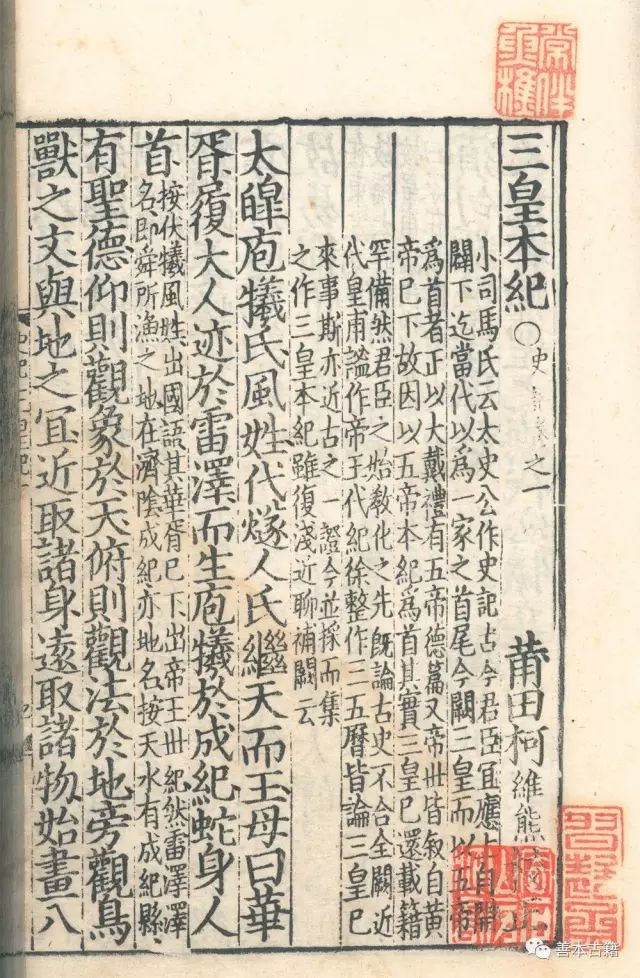 三皇本紀 ○ 史之一 莆田柯維熊
小司馬氏云太史公作史記古今君臣宜應上自開
闢下迄當代以爲一家之首尾今闕三皇而以五帝
爲首者正以大戴禮有五帝德篇又帝丗皆叙自黄
帝已下故因以五帝本紀爲首其實三皇已還載籍
罕備然君臣之始教化之先旣論古史不合全闕近
代皇甫謐作帝王代紀徐整作三五曆皆論三皇已
來事斯亦近古之一證今並採而集
之作三皇本紀雖復淺近聊補闕云
太皥庖犧氏風姓代燧人氏繼天而王母曰華
胥履大人迹於雷澤而生庖犧於成紀蛇身人
首
按伏犧風姓出國語其華胥已下出帝王丗紀然雷澤澤
名即舜所漁之地在濟陰成紀亦地名按天水有成紀縣
有聖德仰則觀象於天俯則觀法於地旁觀鳥
獸之文與地之宜近取諸身遠取諸物始畫八
善本古籍